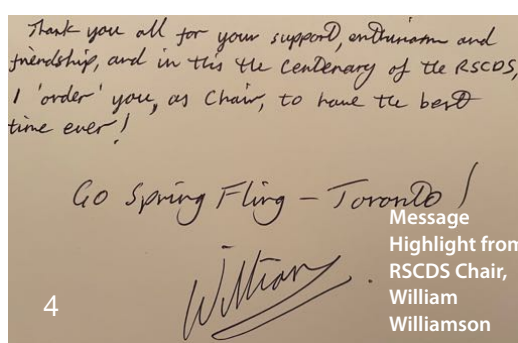 Thank you all for your support, enthusiasm and
friendship, and in this the Centenary of the RSCDS,
I 'order' you, as Chair, to have the best
time ever!
Go Spring Fling – Toronto!
William.
Message
Highlight from
RSCDS Chair,
William
Williamson
4